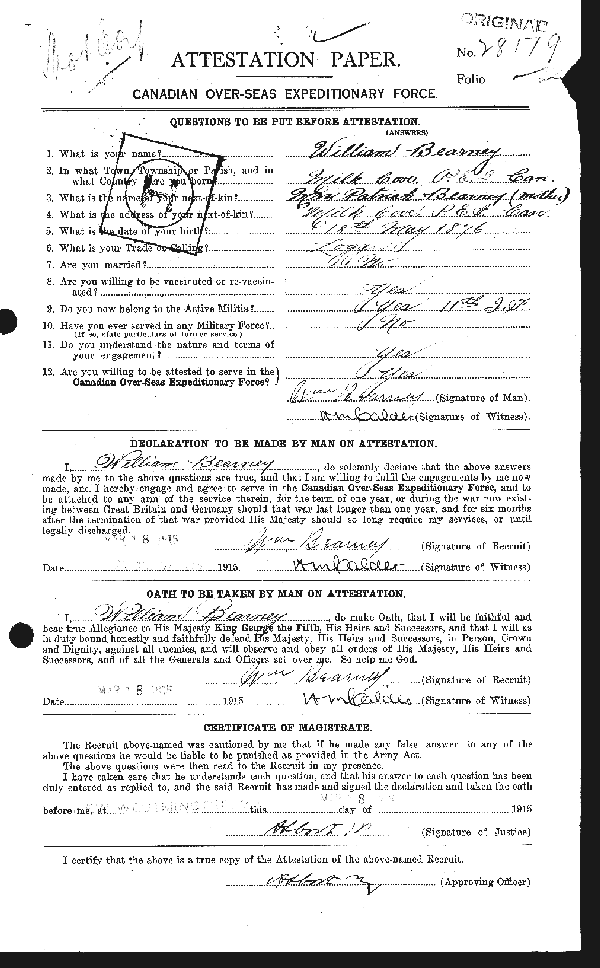 ORIGINAL
ATTESTATION PAPER.
No. 28179
Folio
CANADIAN OVER-SEAS EXPEDITIONARY FORCE.
QUESTIONS TO BE PUT BEFORE ATTESTATION.
(ANSWERS)
1. What is your name? William Bearney
2. In what Town, Township or Parish, and in
what Country were you born? Milk Cove, P.E.I. Can.
3. What is the name of your next-of-kin? Mrs Patrick Bearney (mother)
4. What is the address of your next-of-kin? Milk Cove P.E.I. Can
5. What is the date of your birth? 18th May 1876
6. What is your Trade or Calling? Logger
7. Are you married? No
8. Are you willing to be vaccinated or re-vaccin-
ated? Yes
9. Do you now belong to the Active Militia? Yes 11th
10. Have you ever served in any Military Force? No
(If so, state particulars of former service)
11. Do you understand the nature and terms of
your engagement? Yes
12. Are you willing to be attested to serve in the
Canadian Over-Seas Expeditionary Force? Yes
Wm Bearney (Signature of Man).
(Signature of Witness).
DECLARATION TO BE MADE BY MAN ON ATTESTATION.
I, William Bearney, do solemnly declare that the above answers
made by me to the above questions are true, and that I am willing to fulfil the engagements by me now
made, and I hereby engage and agree to serve in the Canadian Over-Seas Expeditionary Force, and to
be attached to any arm of the service therein, for the term of one year, or during the war now exist-
ing between Great Britain and Germany should that war last longer than one year, and for six months
after the termination of that war provided His Majesty should so long require my services, or until
legally discharged.
Wm Bearney (Signature of Recruit)
Date 1915 (Signature of Witness)
OATH TO BE TAKEN BY MAN ON ATTESTATION.
I, William Bearney, do make Oath, that I will be faithful and
bear true Allegiance to His Majesty King George the Fifth, His Heirs and Successors, and that I will as
in duty bound honestly and faithfully defend His Majesty, His Heirs and Successors, in Person, Crown
and Dignity, against all enemies, and will observe and obey all orders of His Majesty, His Heirs and
Successors, and of all the Generals and Officers set over me. So help me God.
Wm Bearney (Signature of Recruit)
Date 1915 (Signature of Witness)
CERTIFICATE OF MAGISTRATE.
The Recruit above-named was cautioned by me that if he made any false answer to any of the
above questions he would be liable to be punished as provided in the Army Act.
The above questions were then read to the Recruit in my presence.
I have taken care that he understands each question, and that his answer to each question has been
duly entered as replied to, and the said Recruit has made and signed the declaration and taken the oath
before me, at this 8 day of 1915
(Signature of Justice)
I certify that the above is a true copy of the Attestation of the above-named Recruit.
(Approving Officer)